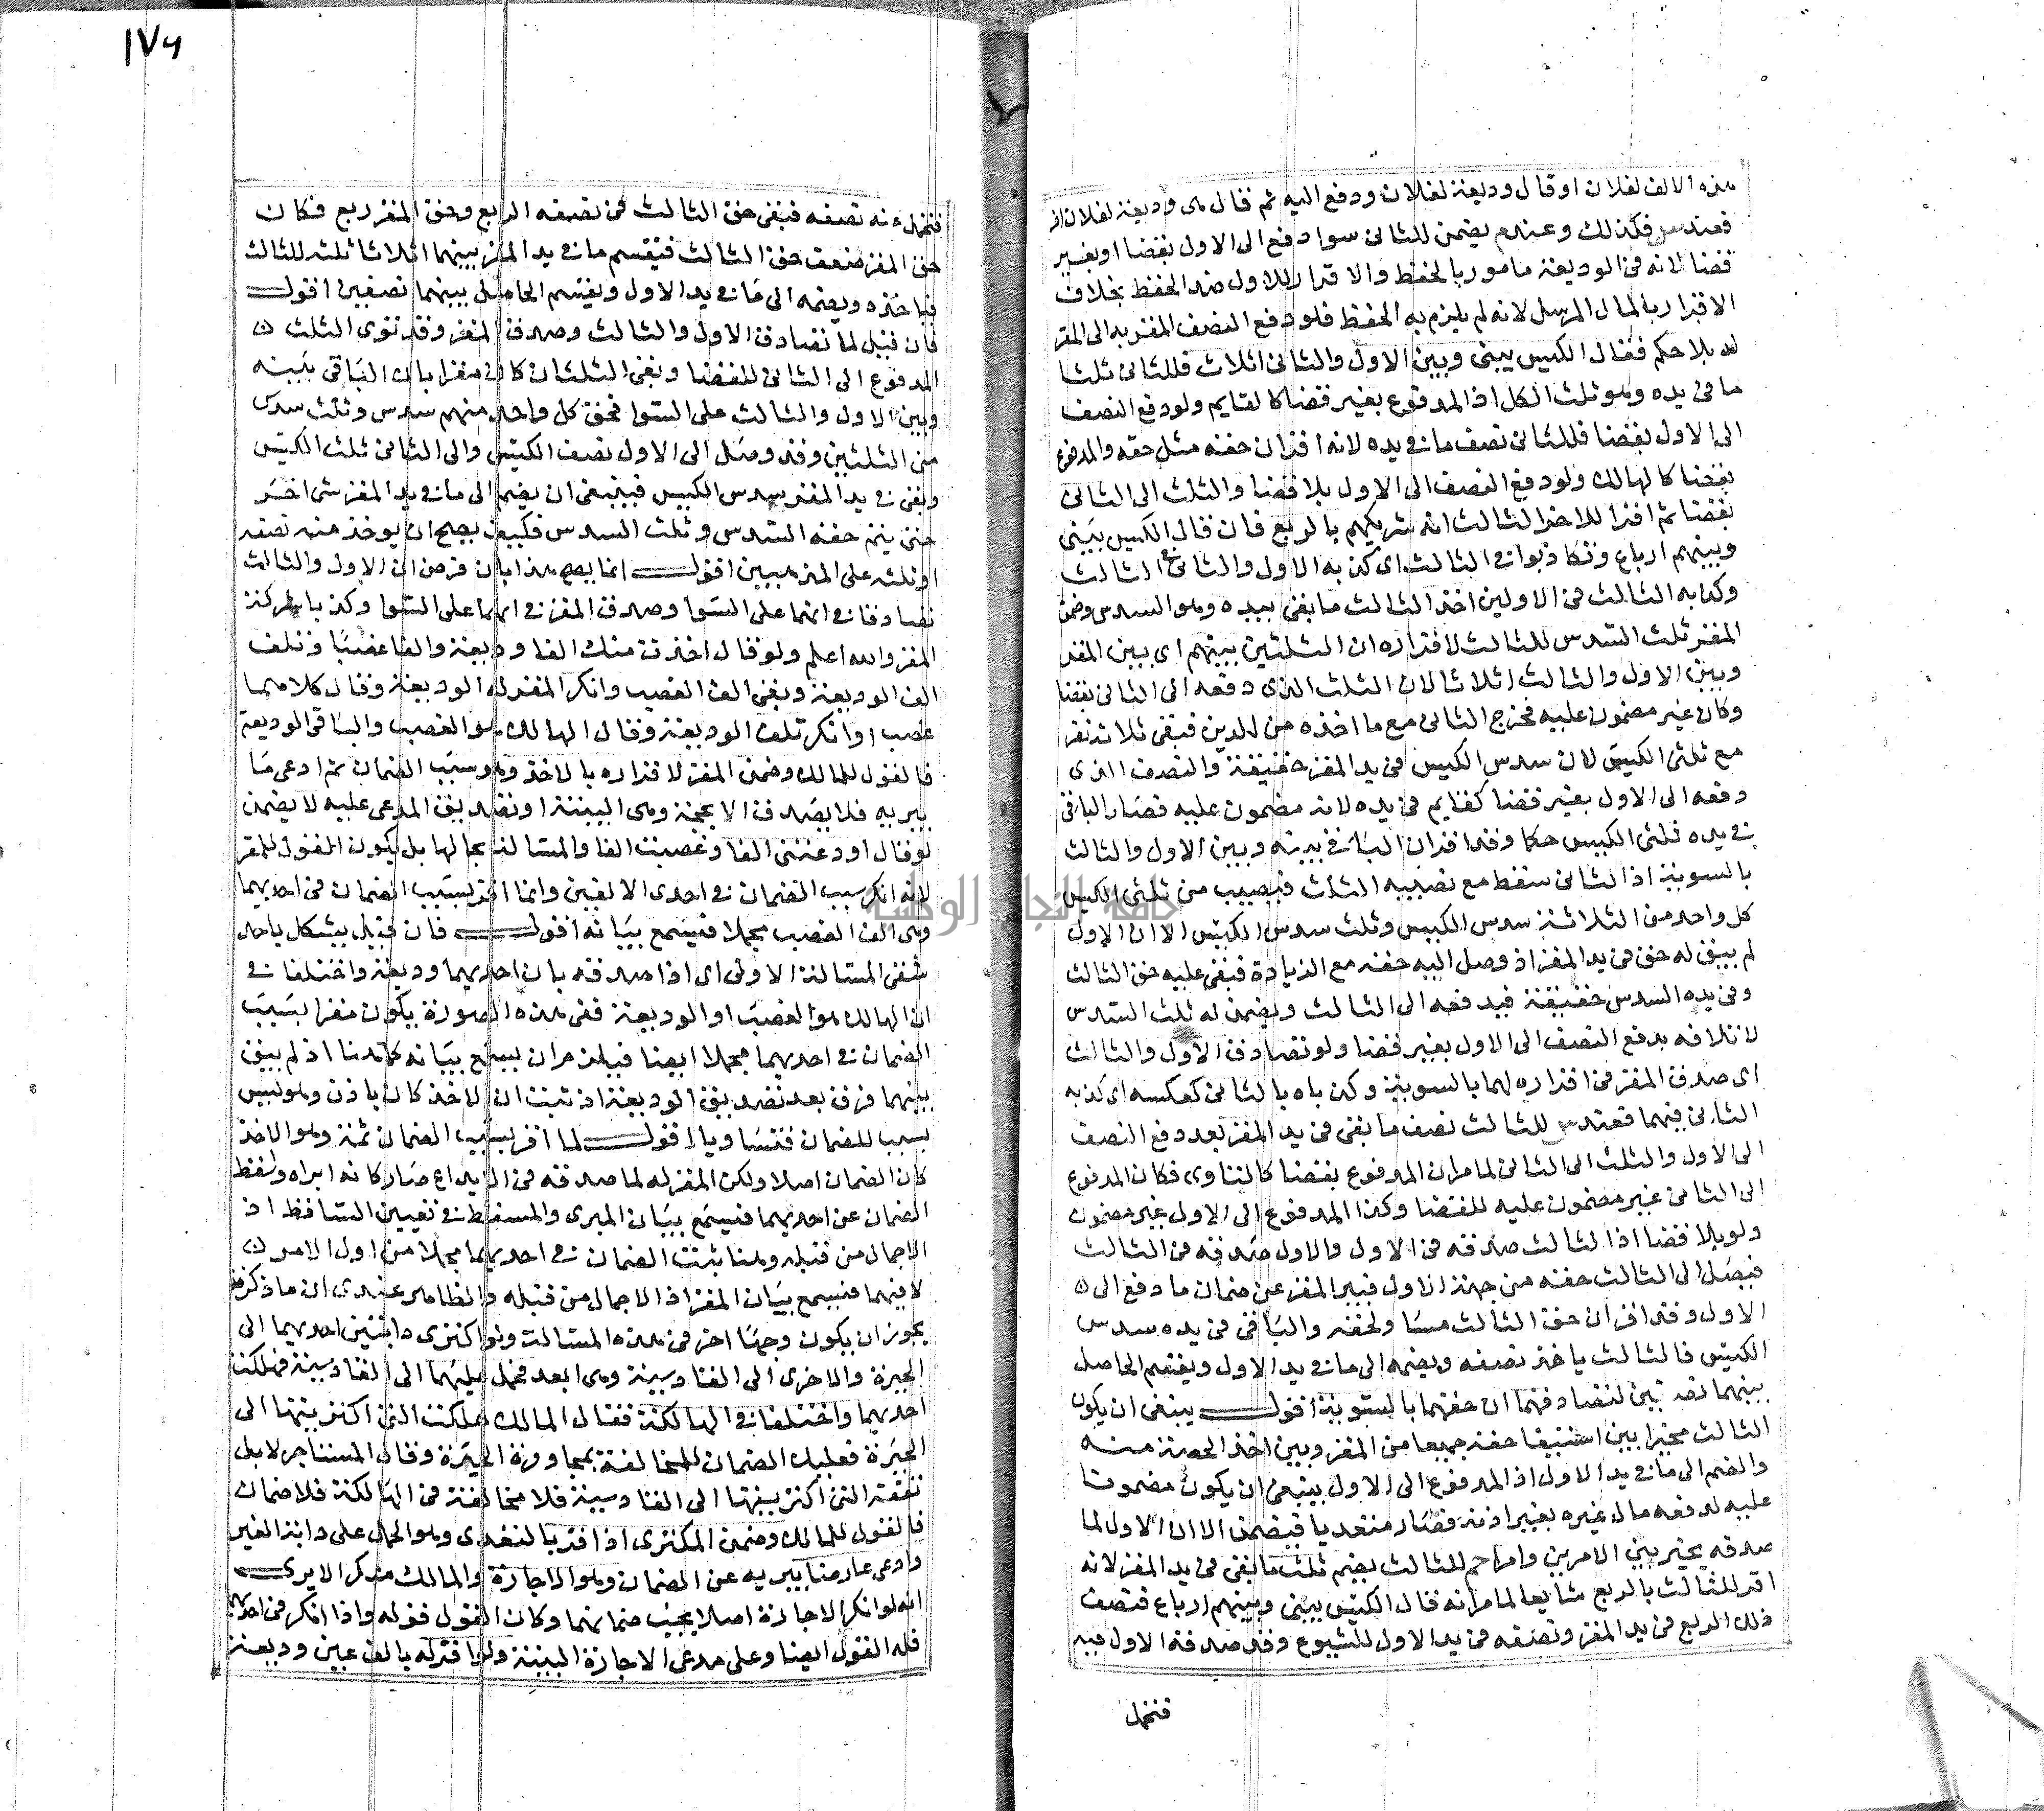 هذه الالف لفلان او قال وديعة لفلان ودفع اليه ثم قال هى وديعة لفلان اخر
فعند س فكذلك وعندم يضمن للثانى سوا دفع الى الاول بقضا او بغير
قضا لانه فى الوديعة مامور بالحفظ والاقرار للاول ضد الحفظ بخلاف
الاقرار بالمال المرسل لانه لم يلزم به الحفظ فلو دفع النصف المقر به الى المقر
له بلا حكم فقال الكيس بينى وبين الاول والثانى اثلاث فللثانى ثلثا
ما فى يده وهو ثلث الكل اذ المدفوع بغير قضا كالقايم ولو دفع النصف
الى الاول بقضا فللثانى نصف ما فى يده لانه اقر ان حقه مثل حقه والمدفوع
بقضا كالهالك ولو دفع النصف الى الاول بلا قضا والثلث الى الثانى
بقضا ثم اقر للاخر الثالث انه شريكهم بالربع فان قال الكيس بينى
وبينهم ارباع وتكاذبوا فى الثالث اى كذبه الاول والثانى فى الثالث
وكذبه الثالث فى الاولين اخذ الثالث ما بقى بيده وهو السدس وضمن
المقر ثلث السدس للثالث لاقراره ان الثلثين بينهم اى بين المقر
وبين الاول والثالث اثلاثا لان الثلث الذى دفعه الى الثانى بقضا
وكان غير مضمون عليه فخرج الثانى مع ما اخذه من الدين فبقى ثلاثة نفر
مع ثلثى الكيس لان سدس الكيس فى يد المقر حقيقة والنصف الذى
دفعه الى الاول بغير قضا كقايم فى يده لانه مضمون عليه فصار الباقى
فى يده ثلثى الكيس حكما وقد اقر ان الباقى بينه وبين الاول والثالث
بالسوية اذ الثانى سقط مع نصيبه الثلث فيصيب من ثلثى الكيس
كل واحد من الثلاثة سدس الكيس وثلث سدس الكيس الا ان الاول
لم يبق له حق فى يد المقر اذ وصل اليه حقه مع الزيادة فبقى عليه حق الثالث
وفى يده السدس حقيقة فيدفعه الى الثالث ويضمن له ثلث السدس
لاتلافه بدفع النصف الى الاول بغير قضا ولو تصادق الاول والثالث
اى صدق المقر فى اقراره لهما بالسوية وكذباه بالثانى كعكسه اى كذبه
الثانى فيهما فعند س للثالث نصف ما بقى فى يد المقر بعد دفع النصف
الى الاول والثلث الى الثانى لما مر ان المدفوع بقضا كالتاوى فكان المدفوع
الى الثانى غير مضمون عليه للقضا وكذا المدفوع الى الاول غير مضمون
ولو بلا قضا اذ الثالث صدقه فى الاول والاول صدقه فى الثالث
فيصل الى الثالث حقه من جهة الاول فيبر المقر عن ضمان ما دفع الى
الاول وقد اقر ان حق الثالث مساو لحقه والباقى فى يده سدس
الكيس فالثالث ياخذ نصفه ويضمه الى ما فى يد الاول ويقتسم الحاصل
بينهما نصفين لتصادقهما ان حقهما بالسوية اقول ينبغى ان يكون
الثالث مخيرا بين استيفا حقه جميعا من المقر وبين اخذ الحصة منه
والضم الى ما فى يد الاول اذ المدفوع الى الاول ينبغى ان يكون مضمونا
عليه لدفعه مال غيره بغير اذنه فصار متعديا فيضمن الا ان الاول لما
صدقه يخير بين الامرين وامر م للثالث بضم ثلث ما بقى فى يد المقر لانه
اقر للثالث بالربع مشايعا لما مر انه قال الكيس بينى وبينهم ارباع فنصف
ذلك الربع فى يد المقر ونصفه فى يد الاول للشيوع وقد صدقه الاول فيه
فتحمل
١٧٦
فتحمل عنه نصفه فبقى حق الثالث فى نصفه الربع وحق المقر ربع فكان
حق المقر ضعف حق الثالث فيقسم ما فى يد المقر بينهما اثلاثا ثلثه للثالث
فياخذه ويضمه الى ما فى يد الاول ويقتسم الحاصل بينهما نصفين اقول
فان قيل لما تصادق الاول والثالث وصدق المقر وقد توى الثلث
المدفوع الى الثانى للقضا وبقى الثلثان كان مقرا بان الباقى بينه
وبين الاول والثالث على السوا فحق كل واحد منهم سدس وثلث سدس
من الثلثين وقد وصل الى الاول نصف الكيس والى الثانى ثلث الكيس
وبقى فى يد المقر سدس الكيس فينبغى ان يضم الى ما فى يد المقر شى اخر
حتى يتم حقه السدس وثلث السدس فكيف يصح ان يوخذ منه نصفه
او ثلثه على المذهبين اقول انما يصح هذا بان فرض ان الاول والثالث
تصادقا فى انهما على السوا وصدق المقر فى انهما على السوا وكذبا
المقر والله اعلم ولو قال اخذت منك الفا وديعة والفا غصبا وتلف
الف الوديعة وبقى الف الغصب وانكر المقر له الوديعة وقال كلاهما
غصب او انكر تلف الوديعة وقال الهالك هو الغصب والباقى الوديعة
فالقول للمالك وضمن المقر لاقراره بالاخذ وهو سبب الضمان ثم ادعى ما
يبريه فلا يصدق الا بحجة وهى البينة او تصديق المدعى عليه لا يضمن
لو قال اودعتنى الفا وغصبت الفا والمسالة بحالها بل يكون القول للمقر
لانه انكر سبب الضمان فى احدى الالفين وانما اقر بسبب الضمان فى احديهما
وهى الف الغصب مجملا فيسمع بيانه اقول فان قيل يشكل باحد
شقى المسالة الاولى اى اذا صدقه بان احديهما وديعة واختلفا فى
ان الهالك هو الغصب او الوديعة ففى هذه الصورة يكون مقرا بسبب
الضمان فى احديهما مجملا ايضا فيلزم ان يسمع بيانه كما هنا اذ لم يبق
بينهما فرق بعد تصديق الوديعة اذ تبث ان الاخذ كان باذن وهو ليس
بسبب للضمان فتساويا اقول لما اقر بسبب الضمان ثمة وهو الاخذ
كان الضمان اصلا ولكن المقر له لما صدقه فى الايداع صار كانه ابراه واسقط
الضمان عن احديهما فيسمع بيان المبرى والمسقط فى تعيين الساقط اذ
الاجمال من قبله وهنا يثبت الضمان فى احديهما مجملا من اول الامر
لا فيهما فيسمع بيان المقر اذ الاجمال من قبله والظاهر عندى ان ما ذكرنا
يجوز ان يكون وجها اخر فى هذه المسالة ولو اكترى دابتين احديهما الى
الحيرة والاخرى الى القادسية وهى ابعد فحمل عليهما الى القادسية فهلكت
احديهما واختلفا فى الهالكة فقال المالك هلكت التى اكتريتها الى
الحيرة فعليك الضمان للمخالفة بمجاوزة الحيرة وقال المستاجر لا بل
نفقت التى اكتريتها الى القادسية فلا مخالفة فى الهالكة فلا ضمان
فالقول للمالك وضمن المكترى اذ اقر بالتعدى وهو الحمل على دابة الغير
وادعى عارضا يبريه عن الضمان وهو الاجارة والمالك منكر الا يرى
انه لو انكر الاجارة اصلا يجب ضمانهما وكان القول قوله واذا انكر فى احديهما
فله القول ايضا وعلى مدعى الاجارة البينة ولو اقر له بالف عين وديعة
جامعة النجاح الوطنية